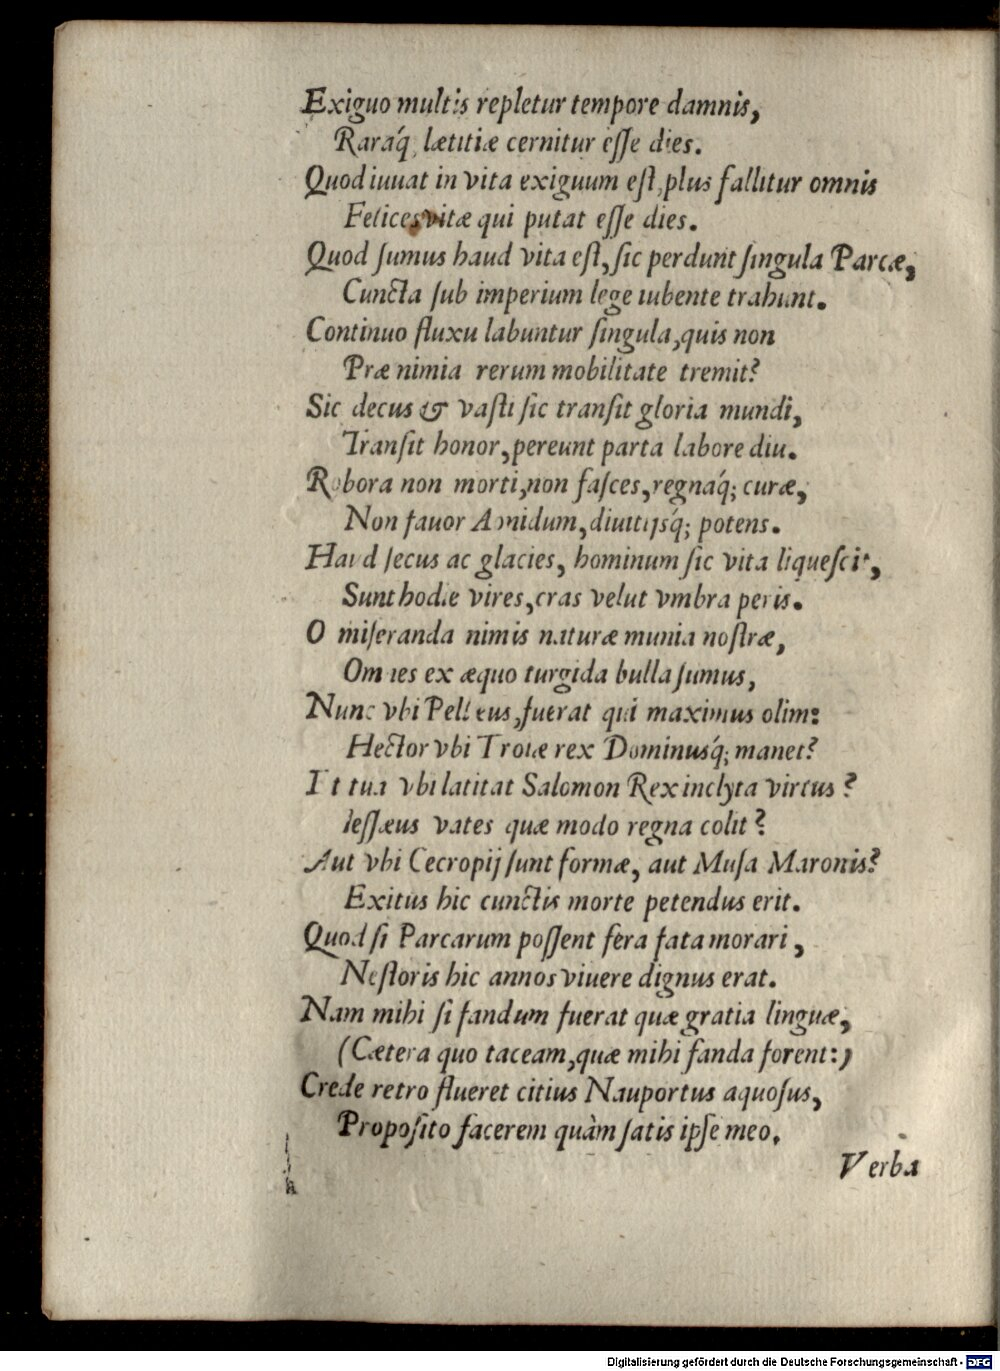 Exiguo multis repletur tempore damnis,
Raraq́, lætitiæ cernitur eſſe dies.
Quod iuuat in vita exiguum eſt, plus fallitur omnis
Felices vitæ qui putat eſſe dies.
Quod ſumus haud vita eſt, ſic perdunt ſingula Parcæ,
Cuncta ſub imperium lege iubente trahunt.
Continuo fluxu labuntur ſingula, quis non
Præ nimia rerum mobilitate tremit?
Sic decus & vaſti ſic tranſit gloria mundi,
Tranſit honor, pereunt parta labore diu.
Robora non morti, non faſces, regnaq́; curæ,
Non fauor Amidum, diuitijsq́; potens.
Haud ſecus ac glacies, hominum ſic vita liqueſcit,
Sunt hodie vires, cras velut vmbra peris.
O miſeranda nimis naturæ munia noſtræ,
Omnes ex æquo turgida bulla ſumus,
Nunc vbi Pelleus, fuerat qui maximus olim:
Hector vbi Troiæ rex Dominusq́; manet?
Et tua vbi latitat Salomon Rex inclyta virtus?
Ieſſæus vates quæ modo regna colit?
Aut vbi Cecropij ſunt formæ, aut Muſa Maronis?
Exitus hic cunctis morte petendus erit.
Quod ſi Parcarum poſſent fera fata morari,
Neſtoris hic annos viuere dignus erat.
Nam mihi ſi fandum fuerat quæ gratia linguæ,
(Cætera quo taceam, quæ mihi fanda forent:)
Crede retro flueret citius Nauportus aquoſus,
Propoſito facerem quàm ſatis ipſe meo.
Verba
Digitalisierung gefördert durch die Deutsche Forschungsgemeinschaft - DFG